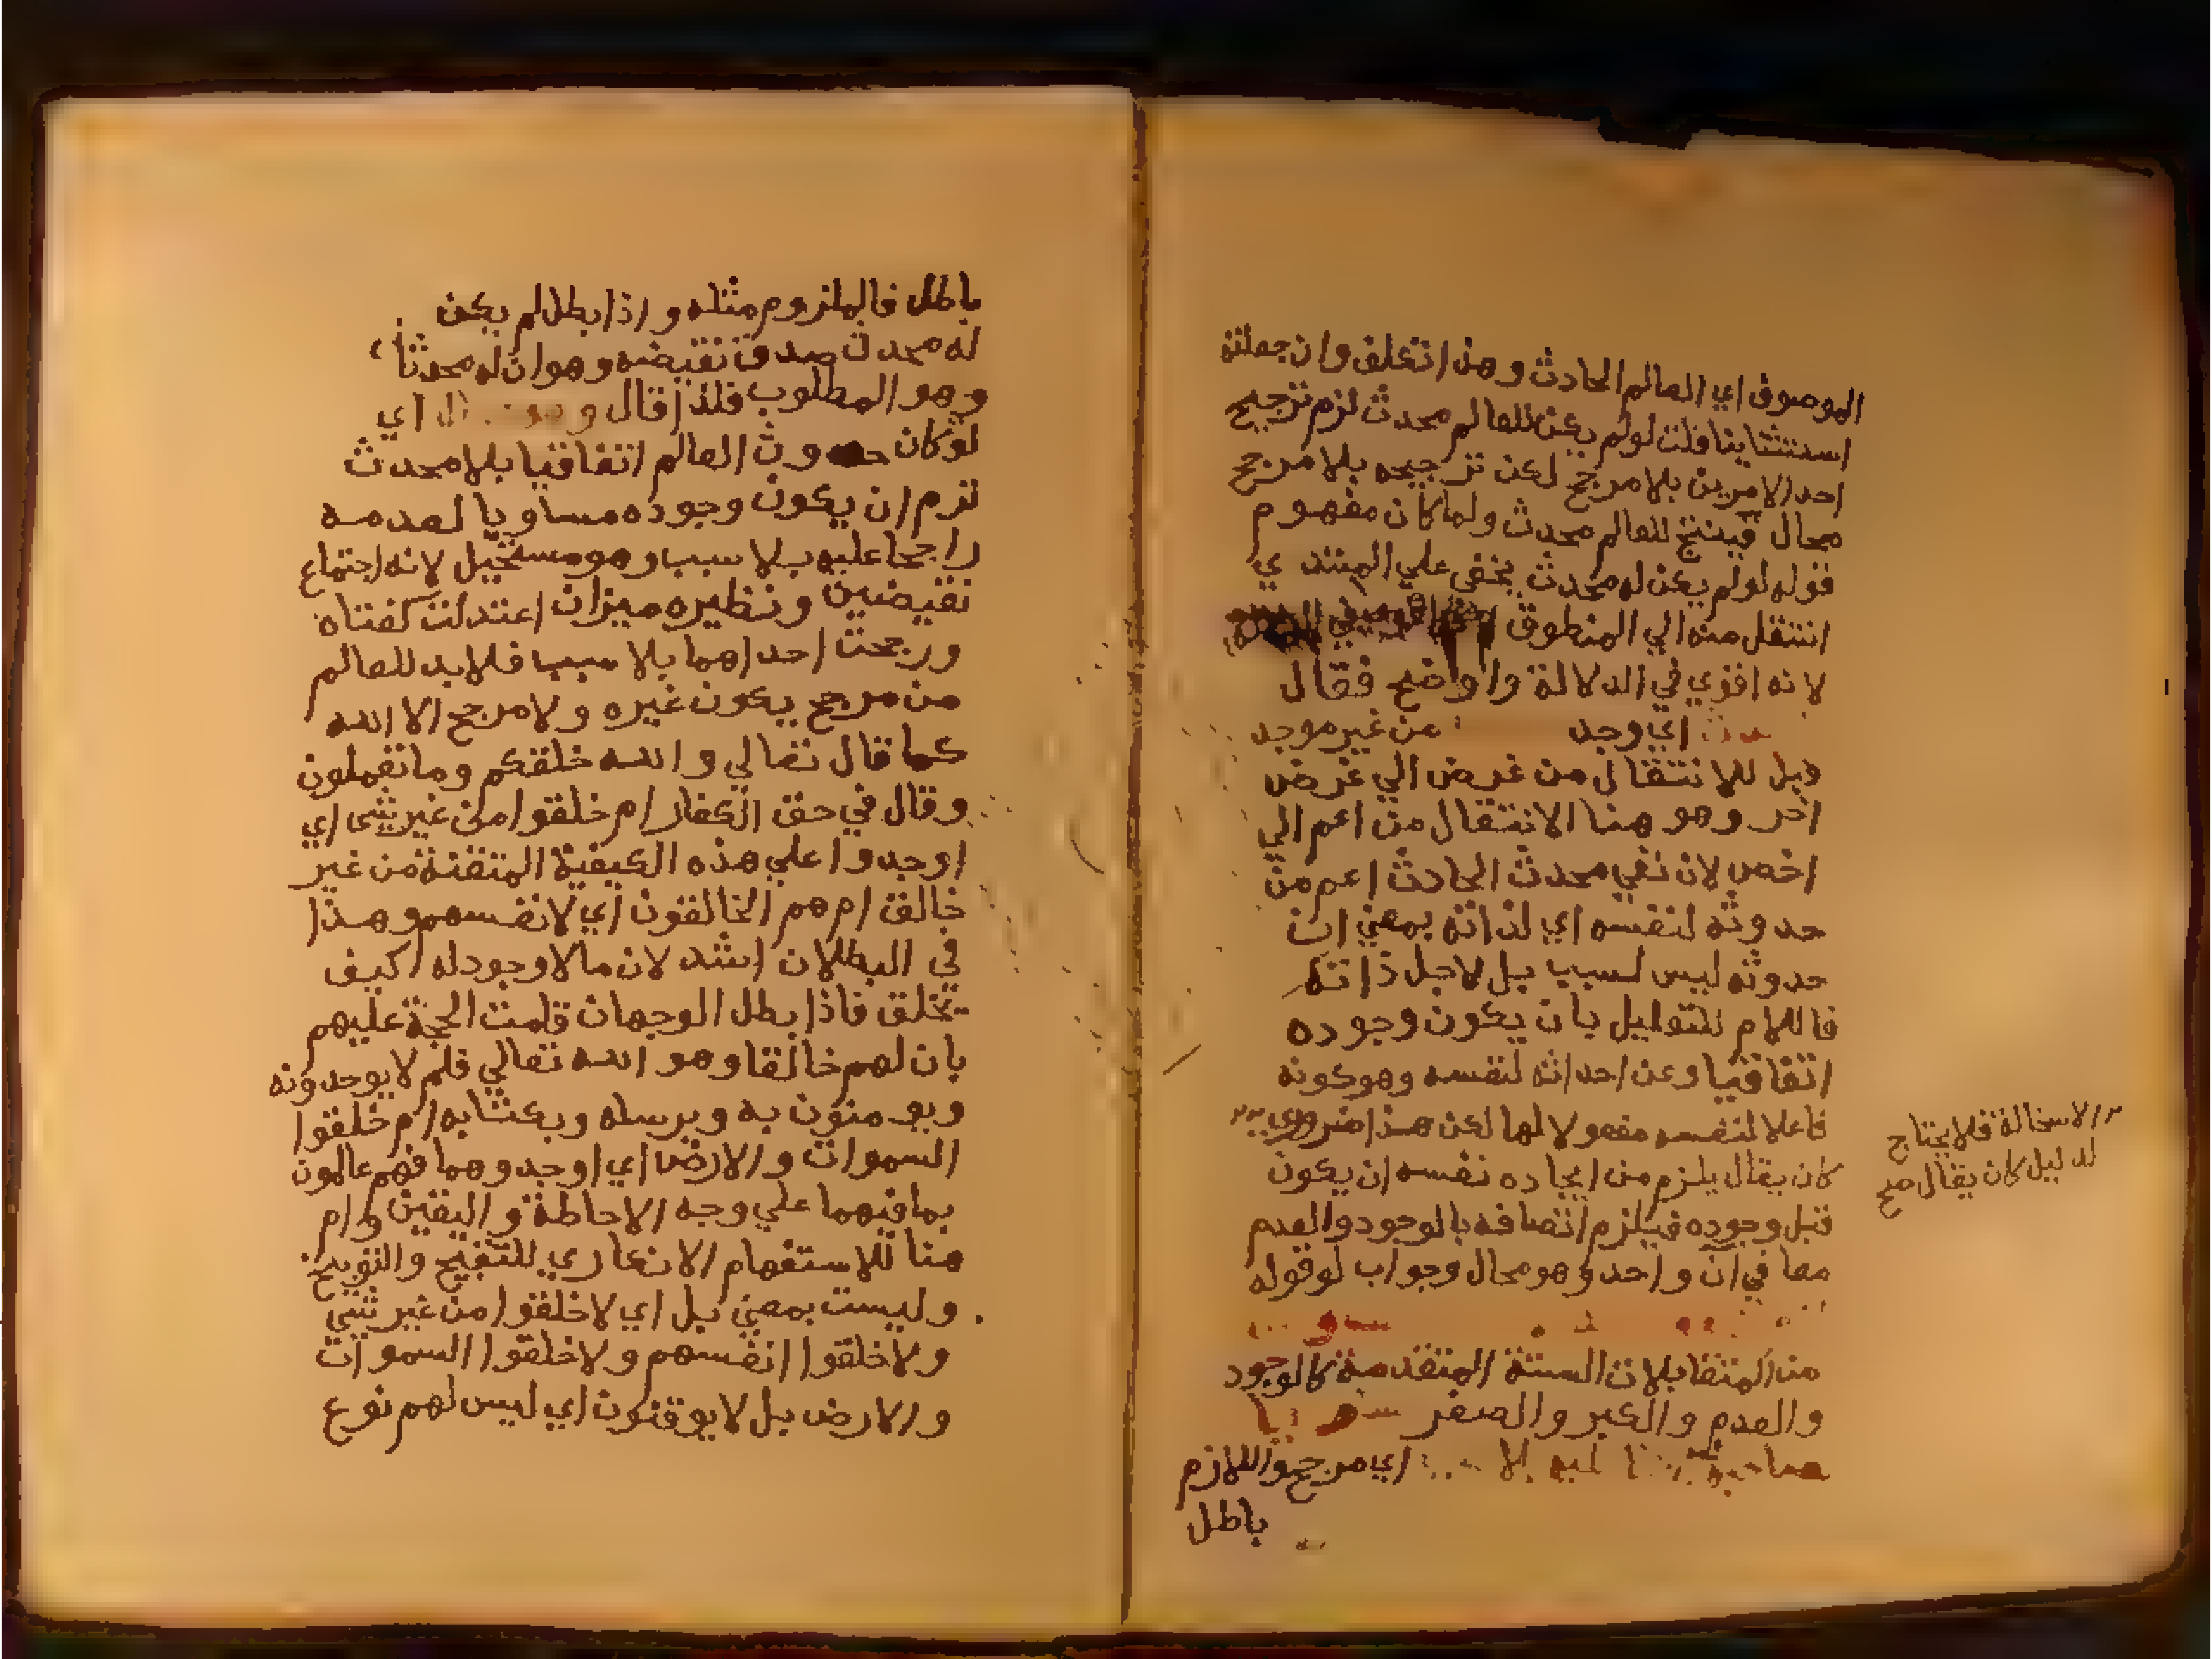 الموصوف اي العالم الحادث وهذا تخلف وان جعلته
استثنايا قلت لولم يكن للعالم محدث لزم ترجيح
احد الامرين بلا مرجح لكن ترجيحه بلا مرجح
محال فينتج للعالم محدث ولما كان مفهوم
قوله لولم يكن له محدث يخفى علي المبتدي
انتقل منه الي المنطوق
لانه اقوي في الدلالة واوضح فقال
اي وجد من غير موجد
وبل للانتقال من غرض الي غرض
اخر وهو هنا الانتقال من اعم الي
اخص لان نفي محدث الحادث اعم من
حدوثه لنفسه اي لذاته بمعني ان
حدوثه ليس لسبب بل لاجل ذاته
فاللام للتعليل بان يكون وجوده
اتفاقيا وعن احداثه لنفسه وهو كونه
فاعلا لنفسه مفعولا لها لكن هذا ضروري
كان يقال يلزم من ايجاده نفسه ان يكون
قبل وجوده فيلزم اتصافه بالوجود والعدم
معا في ان واحد وهو محال وجواب لو قوله
من المتقابلات الستة المتقدمة كالوجود
والعدم والكبر والصغر
اي مرجح واللازم
باطل
الاستحالة فلا يحتاج
لدليل كان يقال صح
باطل فالملزوم مثله واذا بطل لم يكن
له محدث صدق نقيضه وهو ان له محدثا
وهو المطلوب فلذا قال اي
لو كان حدوث العالم اتفاقيا بلا محدث
لزم ان يكون وجوده مساويا لعدمه
راجحا عليه بلا سبب وهو مستحيل لانه اجتماع
نقيضين ونظيره ميزان اعتدلت كفتاه
ورجحت احداهما بلا سبب فلابد للعالم
من مرجح يكون غيره ولا مرجح الا الله
كما قال تعالي والله خلقكم وما تعملون
وقال في حق الكفار ام خلقوا من غير شي اي
اوجدوا علي هذه الكيفية المتقنة من غير
خالق ام هم الخالقون اي لانفسهم وهذا
في البطلان اشد لان ما لا وجود له كيف
يخلق فاذا بطل الوجهان قامت الحجة عليهم
بان لهم خالقا وهو الله تعالي فلم لا يوحدونه
ويومنون به وبرسله وبكتابه ام خلقوا
السموات والارض اي اوجدوهما فهم عالمون
بما فيهما علي وجه الاحاطة واليقين وام
هنا للاستفهام الانكاري للتقبيح والتوبيخ
وليست بمعني بل اي لا خلقوا من غير شي
ولا خلقوا انفسهم ولا خلقوا السموات
والارض بل لا يوقنون اي ليس لهم نوع